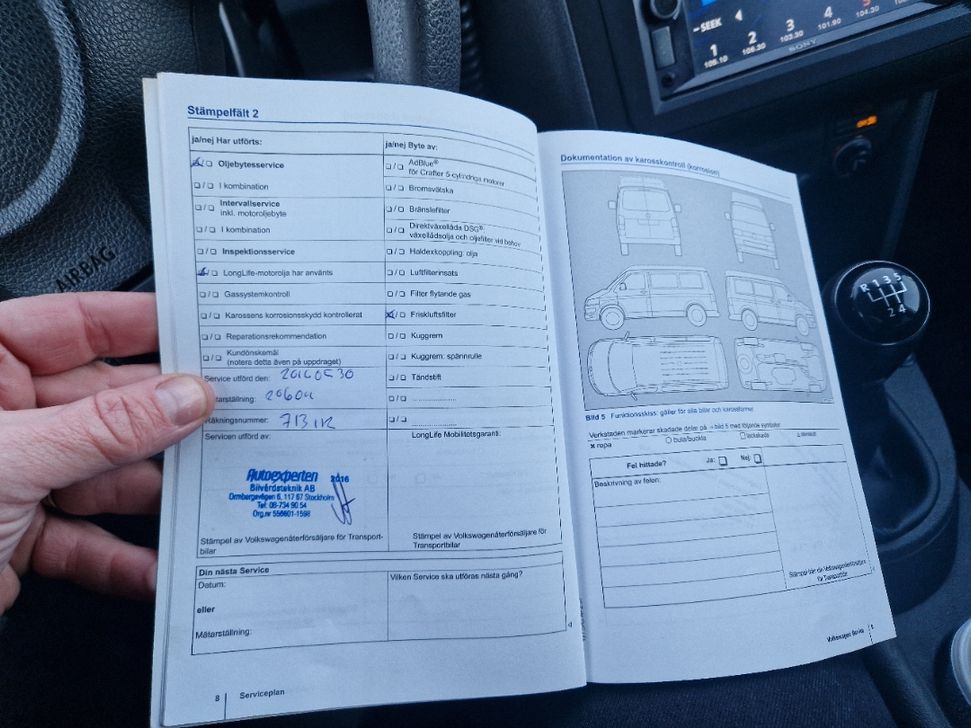 Stämpelfält 2
ja/nej Har utförts:
❏/❏ Oljebytesservice
❏/❏ I kombination
❏/❏ Intervallservice
inkl. motoroljebyte
❏/❏ I kombination
❏/❏ Inspektionsservice
❏/❏ LongLife-motorolja har använts
❏/❏ Gassystemkontroll
❏/❏ Karossens korrosionsskydd kontrollerat
❏/❏ Reparationsrekommendation
❏/❏ Kundönskemål
(notera detta även på uppdraget)
Service utförd den:
Servicen utförd av:
Autoexperten 2016
Bilvårdsteknik AB
Ormbergsvägen 6, 117 67 Stockholm
Tel: 08-734 90 54
Org.nr 556601-1598
Stämpel av Volkswagenåterförsäljare för Transport-
bilar
ja/nej Byte av:
❏/❏ AdBlue®
för Crafter 5-cylindriga motorer
❏/❏ Bromsvätska
❏/❏ Bränslefilter
❏/❏ Direktväxellåda DSG®:
växellådsolja och oljefilter vid behov
❏/❏ Haldexkoppling: olja
❏/❏ Luftfilterinsats
❏/❏ Filter flytande gas
❏/❏ Friskluftsfilter
❏/❏ Kuggrem
❏/❏ Kuggrem: spännrulle
❏/❏ Tändstift
❏/❏ ....................
❏/❏ ....................
LongLife Mobilitetsgaranti:
Stämpel av Volkswagenåterförsäljare för
Transportbilar
Din nästa Service
Datum:
eller
Mätarställning:
Vilken Service ska utföras nästa gång?
8 Serviceplan
Dokumentation av karosskontroll (korrosion)
Bild 5 Funktionsskiss: gäller för alla bilar och karossformer
Verkstaden markerar skadade delar på → bild 5 med följande symboler
× repa
○ bula/buckla
❏ lackskada
Fel hittade? Ja: ❏ Nej: ❏
Beskrivning av felen:
för Transportbilar
AIRBAG
SEEK
1 2 3 4
106.30 103.30 101.90 104.30
SONY
R 1 3 5
2 4